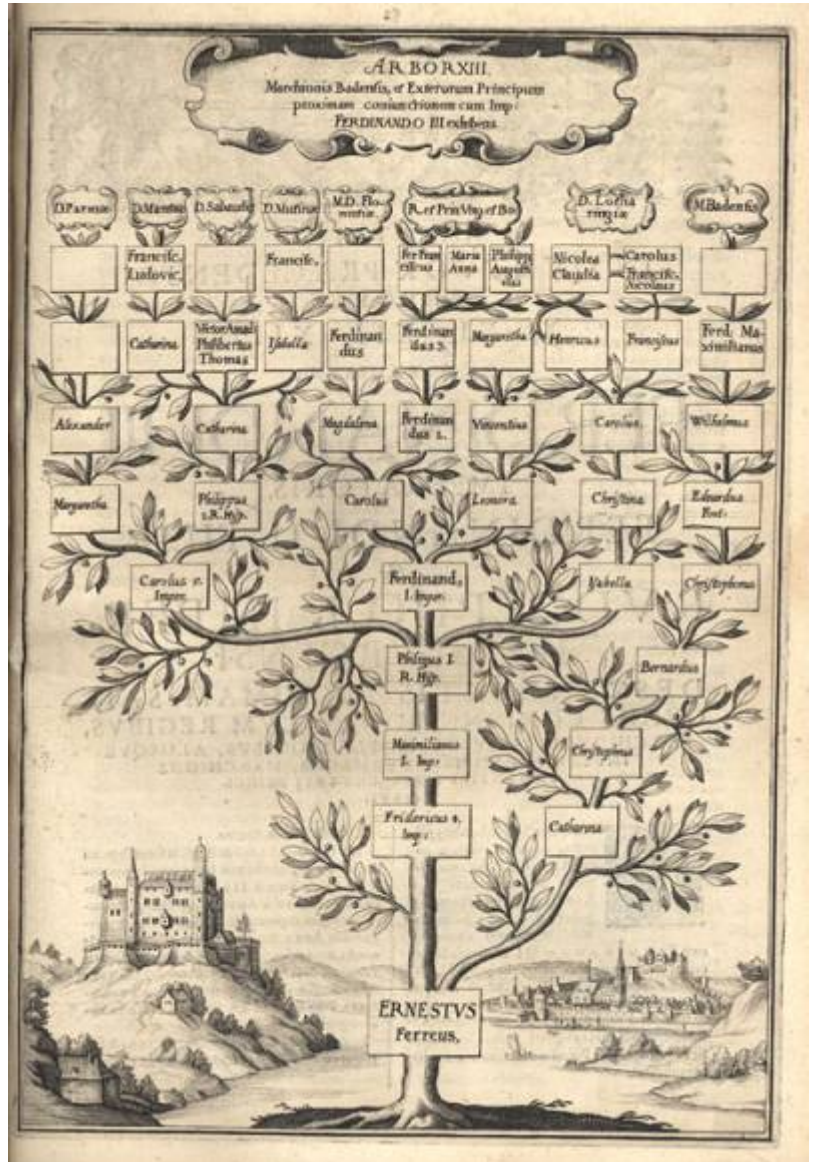 27
ARBOR XIII.
Marchionis Badensis, et Exterorum Principum
proximam coniunctionem cum Imp:
FERDINANDO III exhibens
D. Parmæ
D. Mantuæ
D. Sabaudiæ
D. Mutinæ
M.D. Flo-
rentiæ
R. et Prin
D. Lotha
ringiæ
M. Badensis
Francisc.
Ludovic.
Francisc.
Fer Fran
ciscus
Maria
Anna
Philipp
Nicolea
Claudia
Carolus
Francisc.
Nicolaus
Catharina
Victor Amad
Philibertus
Thomas
Isabella
Ferdinan
dus
Ferdinan
dus 3.
Margaretha
Henricus
Franciscus
Ferd: Ma-
ximilianus
Alexander
Catharina
Magdalena
Ferdinan
dus 2.
Vincentius
Carolus
Wilhelmus
Margaretha
Philippus
2. R. Hisp.
Carolus
Leonora
Christina
Eduardus
Fort:
Carolus 5.
Imper.
Ferdinand9
I. Imper.
Isabella
Christophorus
Philippus I.
R. Hisp.
Bernardus
Maximilianus
I. Imp:
Christophorus
Fridericus 3.
Imp:
Catharina
ERNESTVS
Ferreus,